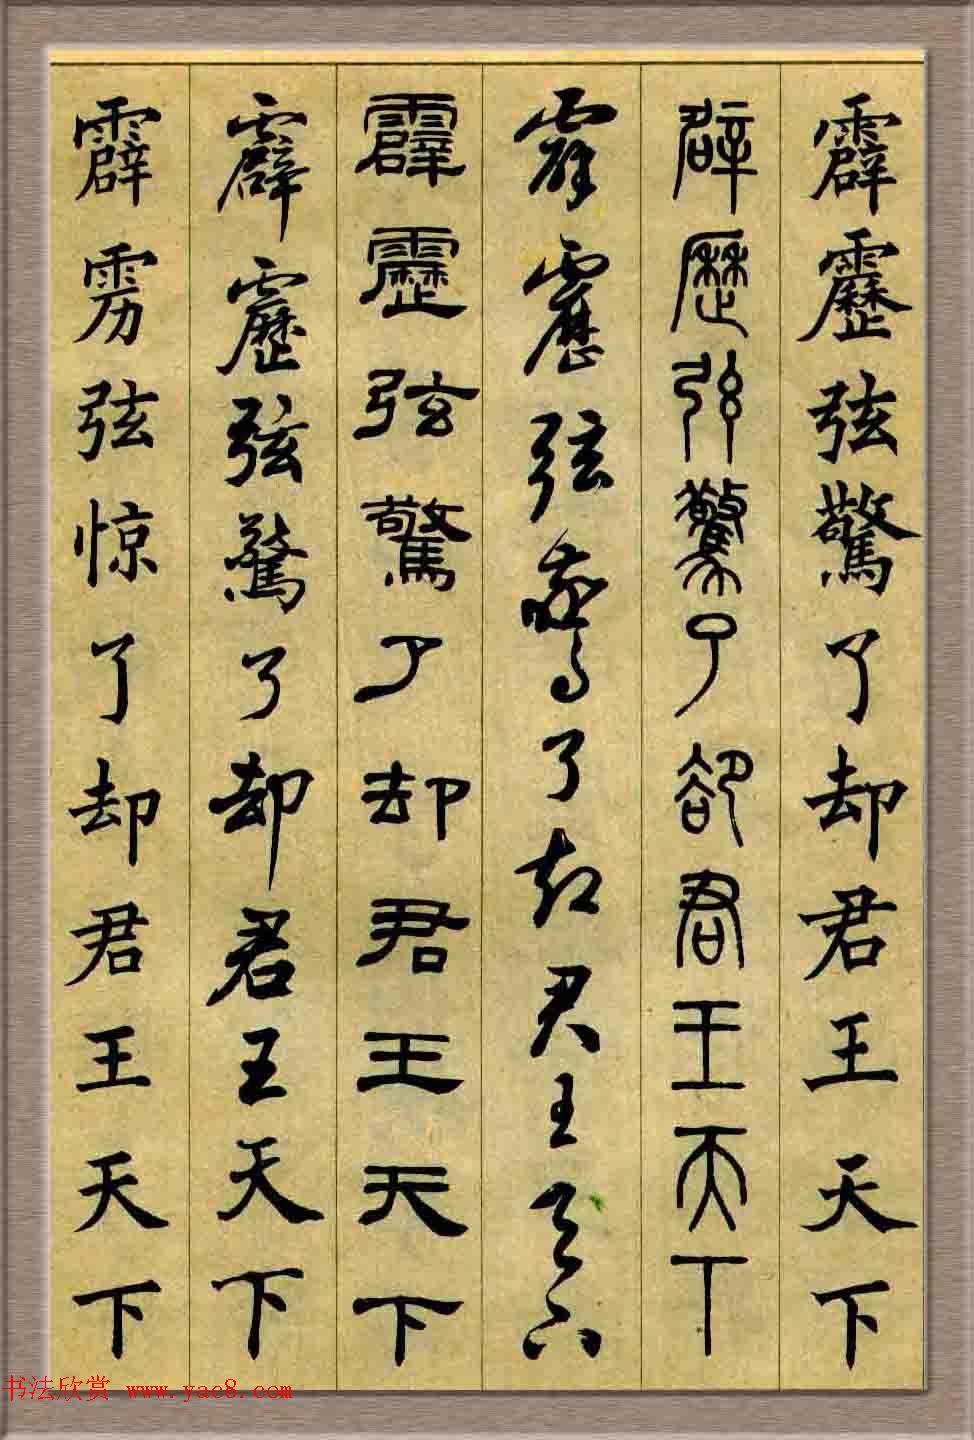 霹靂弦驚了却君王天下
辟歷弦驚了卻君王天下
霹靂弦驚了却君王天下
霹靂弦驚了却君王天下
霹靂弦驚了却君王天下
霹雳弦惊了却君王天下
书法欣赏 www.yac8.com